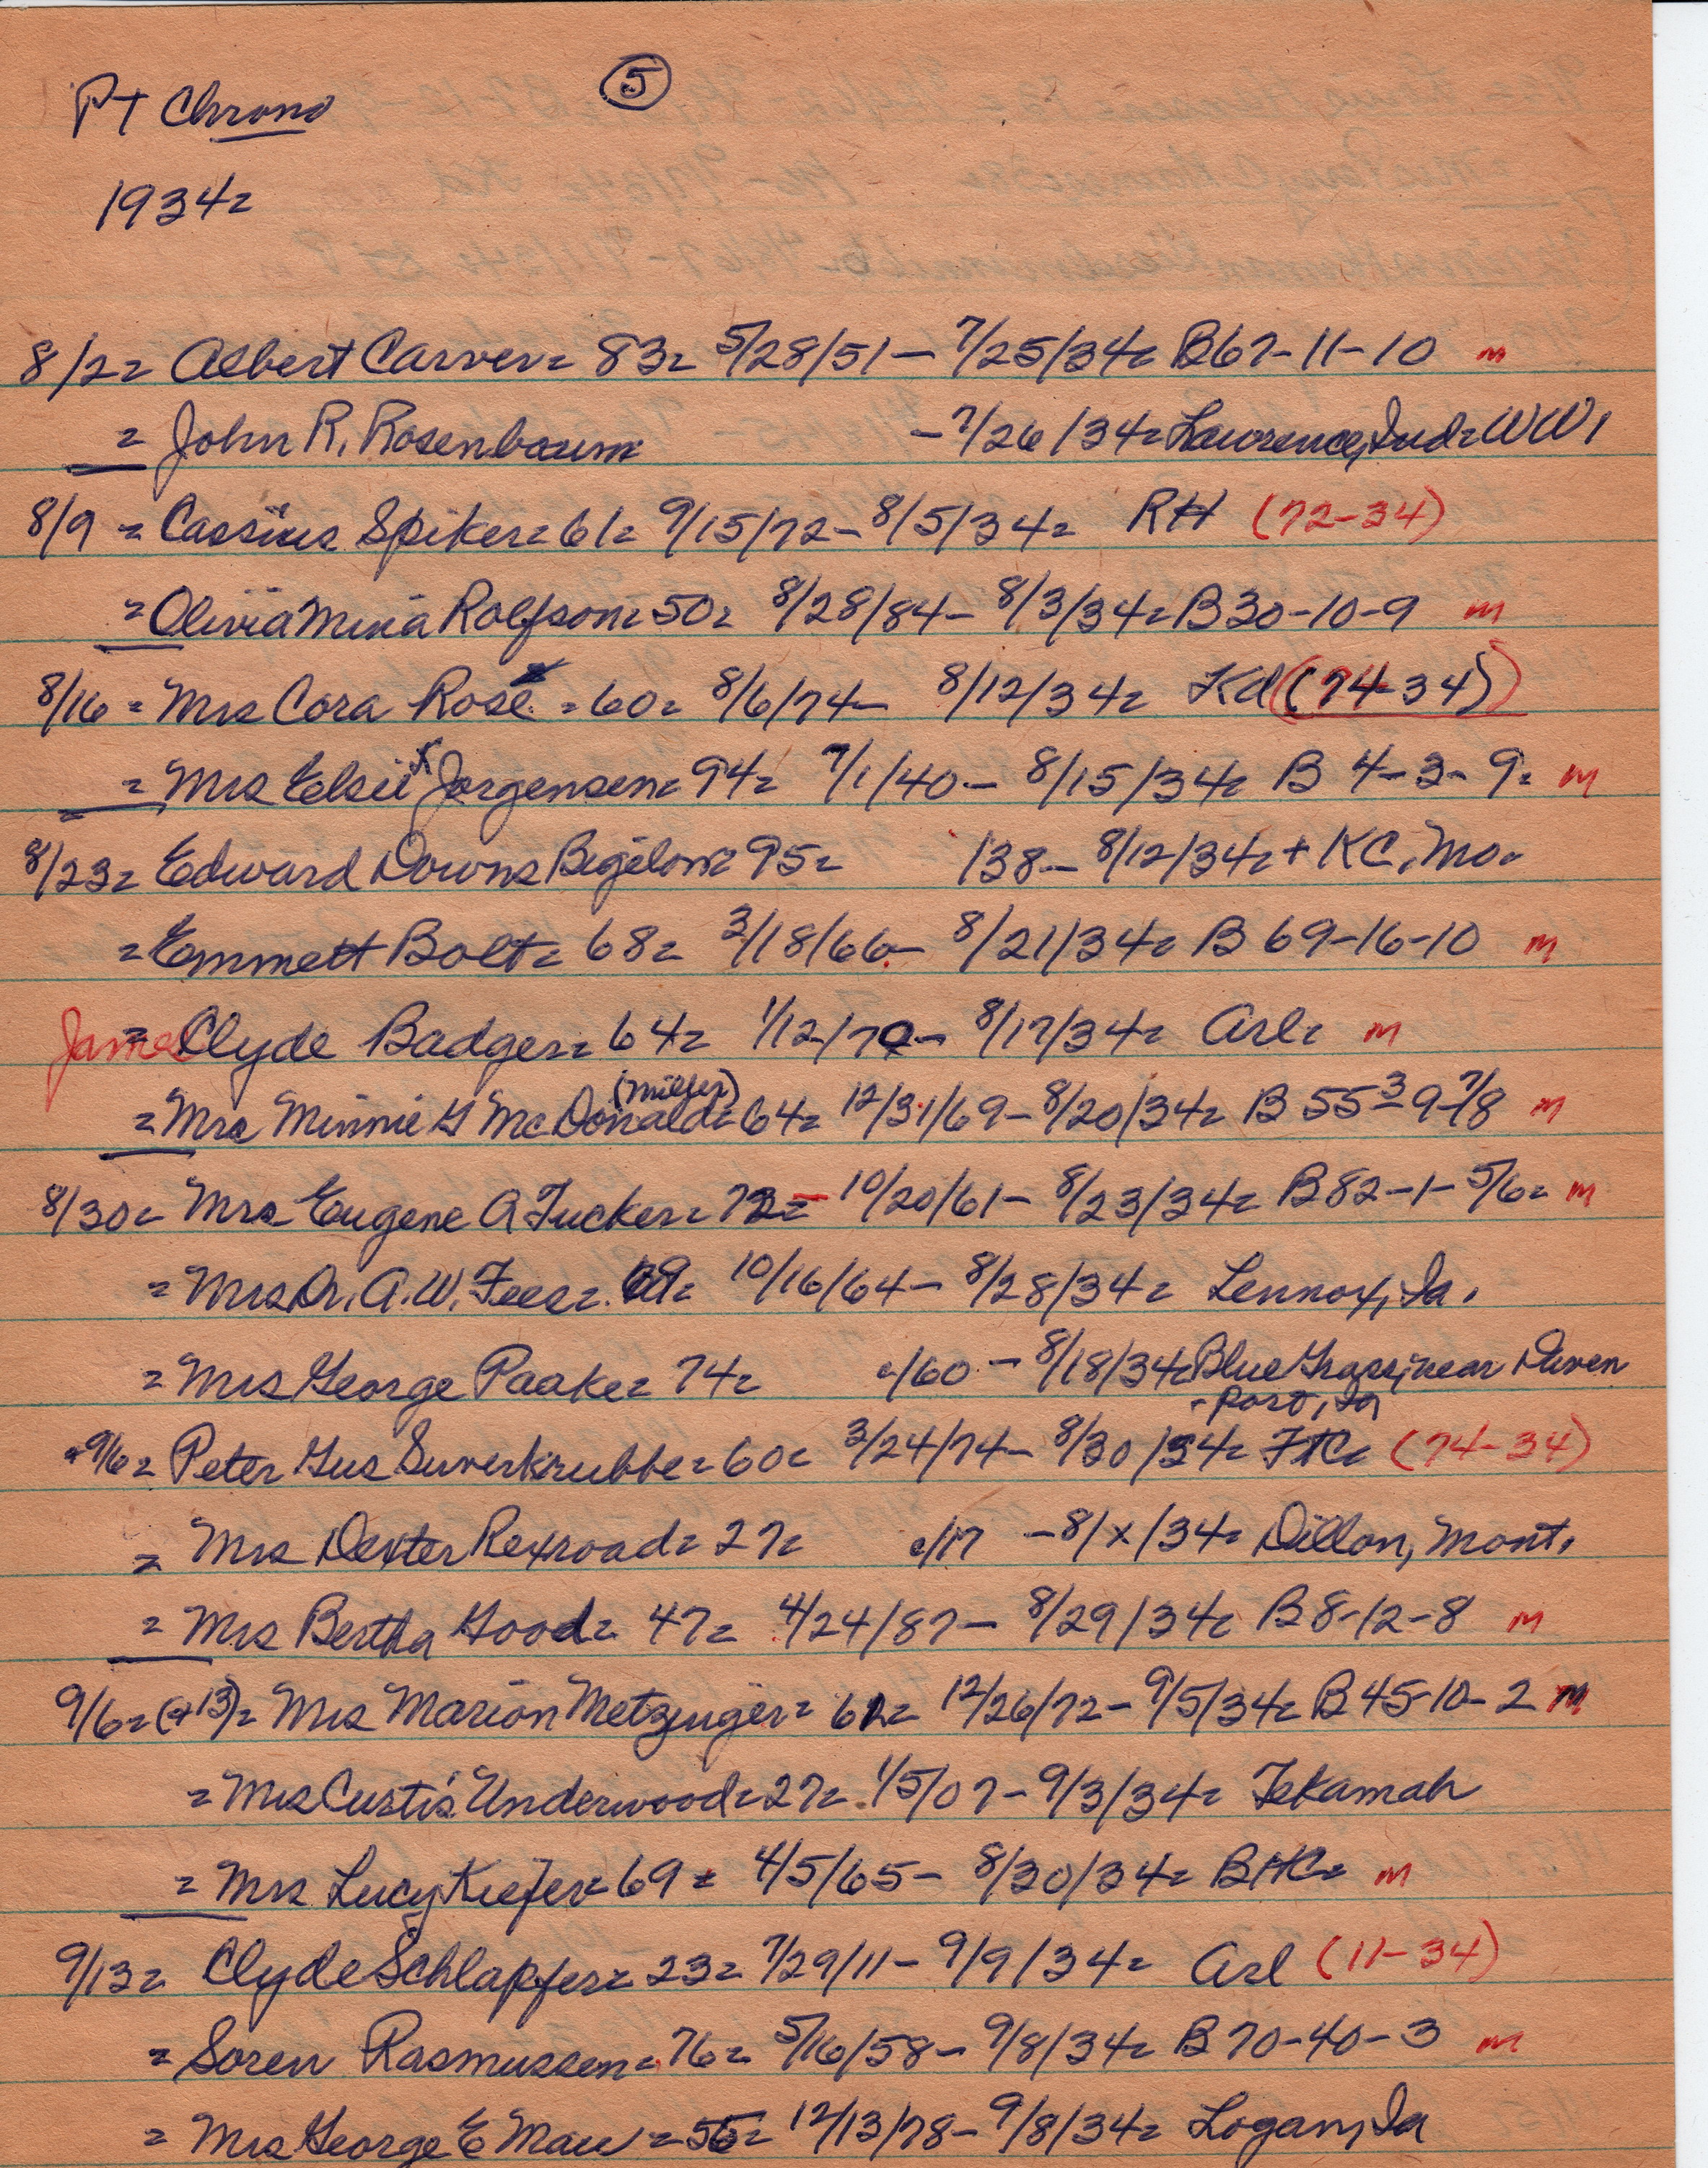 Pt Chrono
⑤
1934=
8/2= Albert Carver= 83= 5/28/51 – 7/25/34= B67-11-10 m
= John R. Rosenbaum – 7/26/34= Lawrence, Ind= WW1
8/9 = Cassius Spiker= 61= 9/15/72 – 8/5/34= RH (72-34)
= Olivia Mina Rolfson= 50= 8/28/84 – 8/3/34= B30-10-9 m
8/16 = Mrs Cora Rose = 60= 8/6/74 – 8/12/34= Kd (74-34)
= Mrs Elsie K Jorgensen= 94= 7/1/40 – 8/15/34= B 4-3-9= m
8/23= Edward Downs Bigelow= 95= /38 – 8/12/34= + KC, Mo.
= Emmett Bolt= 68= 3/18/66 – 8/21/34= B 69-16-10 m
James = Clyde Badger= 64= 1/12/70 – 8/17/34= Arl= m
(Miller)
= Mrs Minnie G McDonald= 64= 12/31/69 – 8/20/34= B 55-3-9-7/8 m
8/30= Mrs Eugene A Tucker= 72= 10/20/61 – 8/23/34= B82-1-5/6= m
= Mrs Dr. A.W. Fees= 69= 10/16/64 – 8/28/34= Lennox, Ia.
= Mrs George Paake= 74= c/60 – 8/18/34= Blue Grass, near Daven
-port, Ia
9/6= Peter Gus Suverkrubbe= 60= 3/24/74 – 8/30/34= FtC= (74-34)
= Mrs Dexter Rexroad= 27= c/17 – 8/x/34= Dillon, Mont.
= Mrs Bertha Good= 47= 4/24/87 – 8/29/34= B8-12-8 m
9/6= (+13)= Mrs Marion Metzinger= 61= 12/26/72 – 9/5/34= B45-10-2 m
= Mrs Curtis Underwood= 27= 1/5/07 – 9/3/34= Tekamah
= Mrs Lucy Kiefer= 69= 4/5/65 – 8/30/34= BHC= m
9/13= Clyde Schlapfer= 23= 7/29/11 – 9/9/34= Arl (11-34)
= Soren Rasmussen= 76= 5/16/58 – 9/8/34= B70-40-3 m
= Mrs George E Mau = 55= 12/13/78 – 9/8/34= Logan, Ia